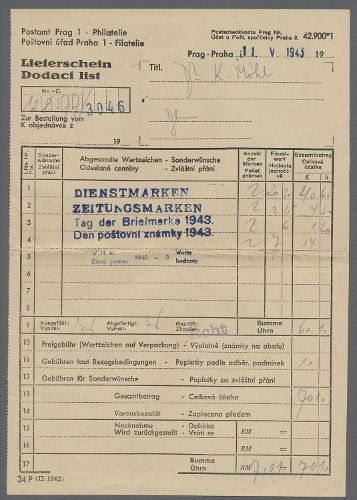 Postamt Prag 1 - Philatelie
Poštovní úřad Praha 1 - Filatelie
Postscheckkonto Prag Nr.
Účet u Pošt. spořitelny Praha č. 42.900*)
Prag-Praha 11. V. 1943 19
Lieferschein
Dodací list
Titl.
K. Möhl
Nr. - Č.
3046
Zur Bestellung vom
K objednávce z 19
Einder-
wünsche
Zvláštní
přání
Abgesandte Wertzeichen - Sonderwünsche
Odeslané cenniny, - Zvláštní přání
Anzahl
der
Marken
Počet
známek
Einzel-
wert
Hodnota
jednotli-
vě
Gesamtbetrag
Celková
částka
K h
1
2
3
4
5
6
7
8
DIENSTMARKEN
ZEITUNGSMARKEN
Tag der Briefmarke 1943.
Den poštovní známky 1943.
W. H. W. 1943 - 3 Werte
Zimní pomoc hodnoty
9 Ausgefüllt: Abgefertigt: Geprüft: Summe
Vyplnil: Vyřídil: Zkoušel: Úhrn 60
10 Freigebühr (Wertzeichen auf Verpackung) - Výplatné (známky na obalu)
11 Gebühren laut Bezugsbedingungen - Poplatky podle odběr. podmínek 10
12 Gebühren für Sonderwünsche - Poplatky za zvláštní přání
13 Gesamtbetrag - Celková částka 70
14 Vorausbezahlt - Zaplaceno předem
15 Nachnahme - Dobírka RM =
Wird zurückgestellt - Vrátí se RM =
17 Summe
Úhrn RM 7,01 = 70
34 P (II-1942)